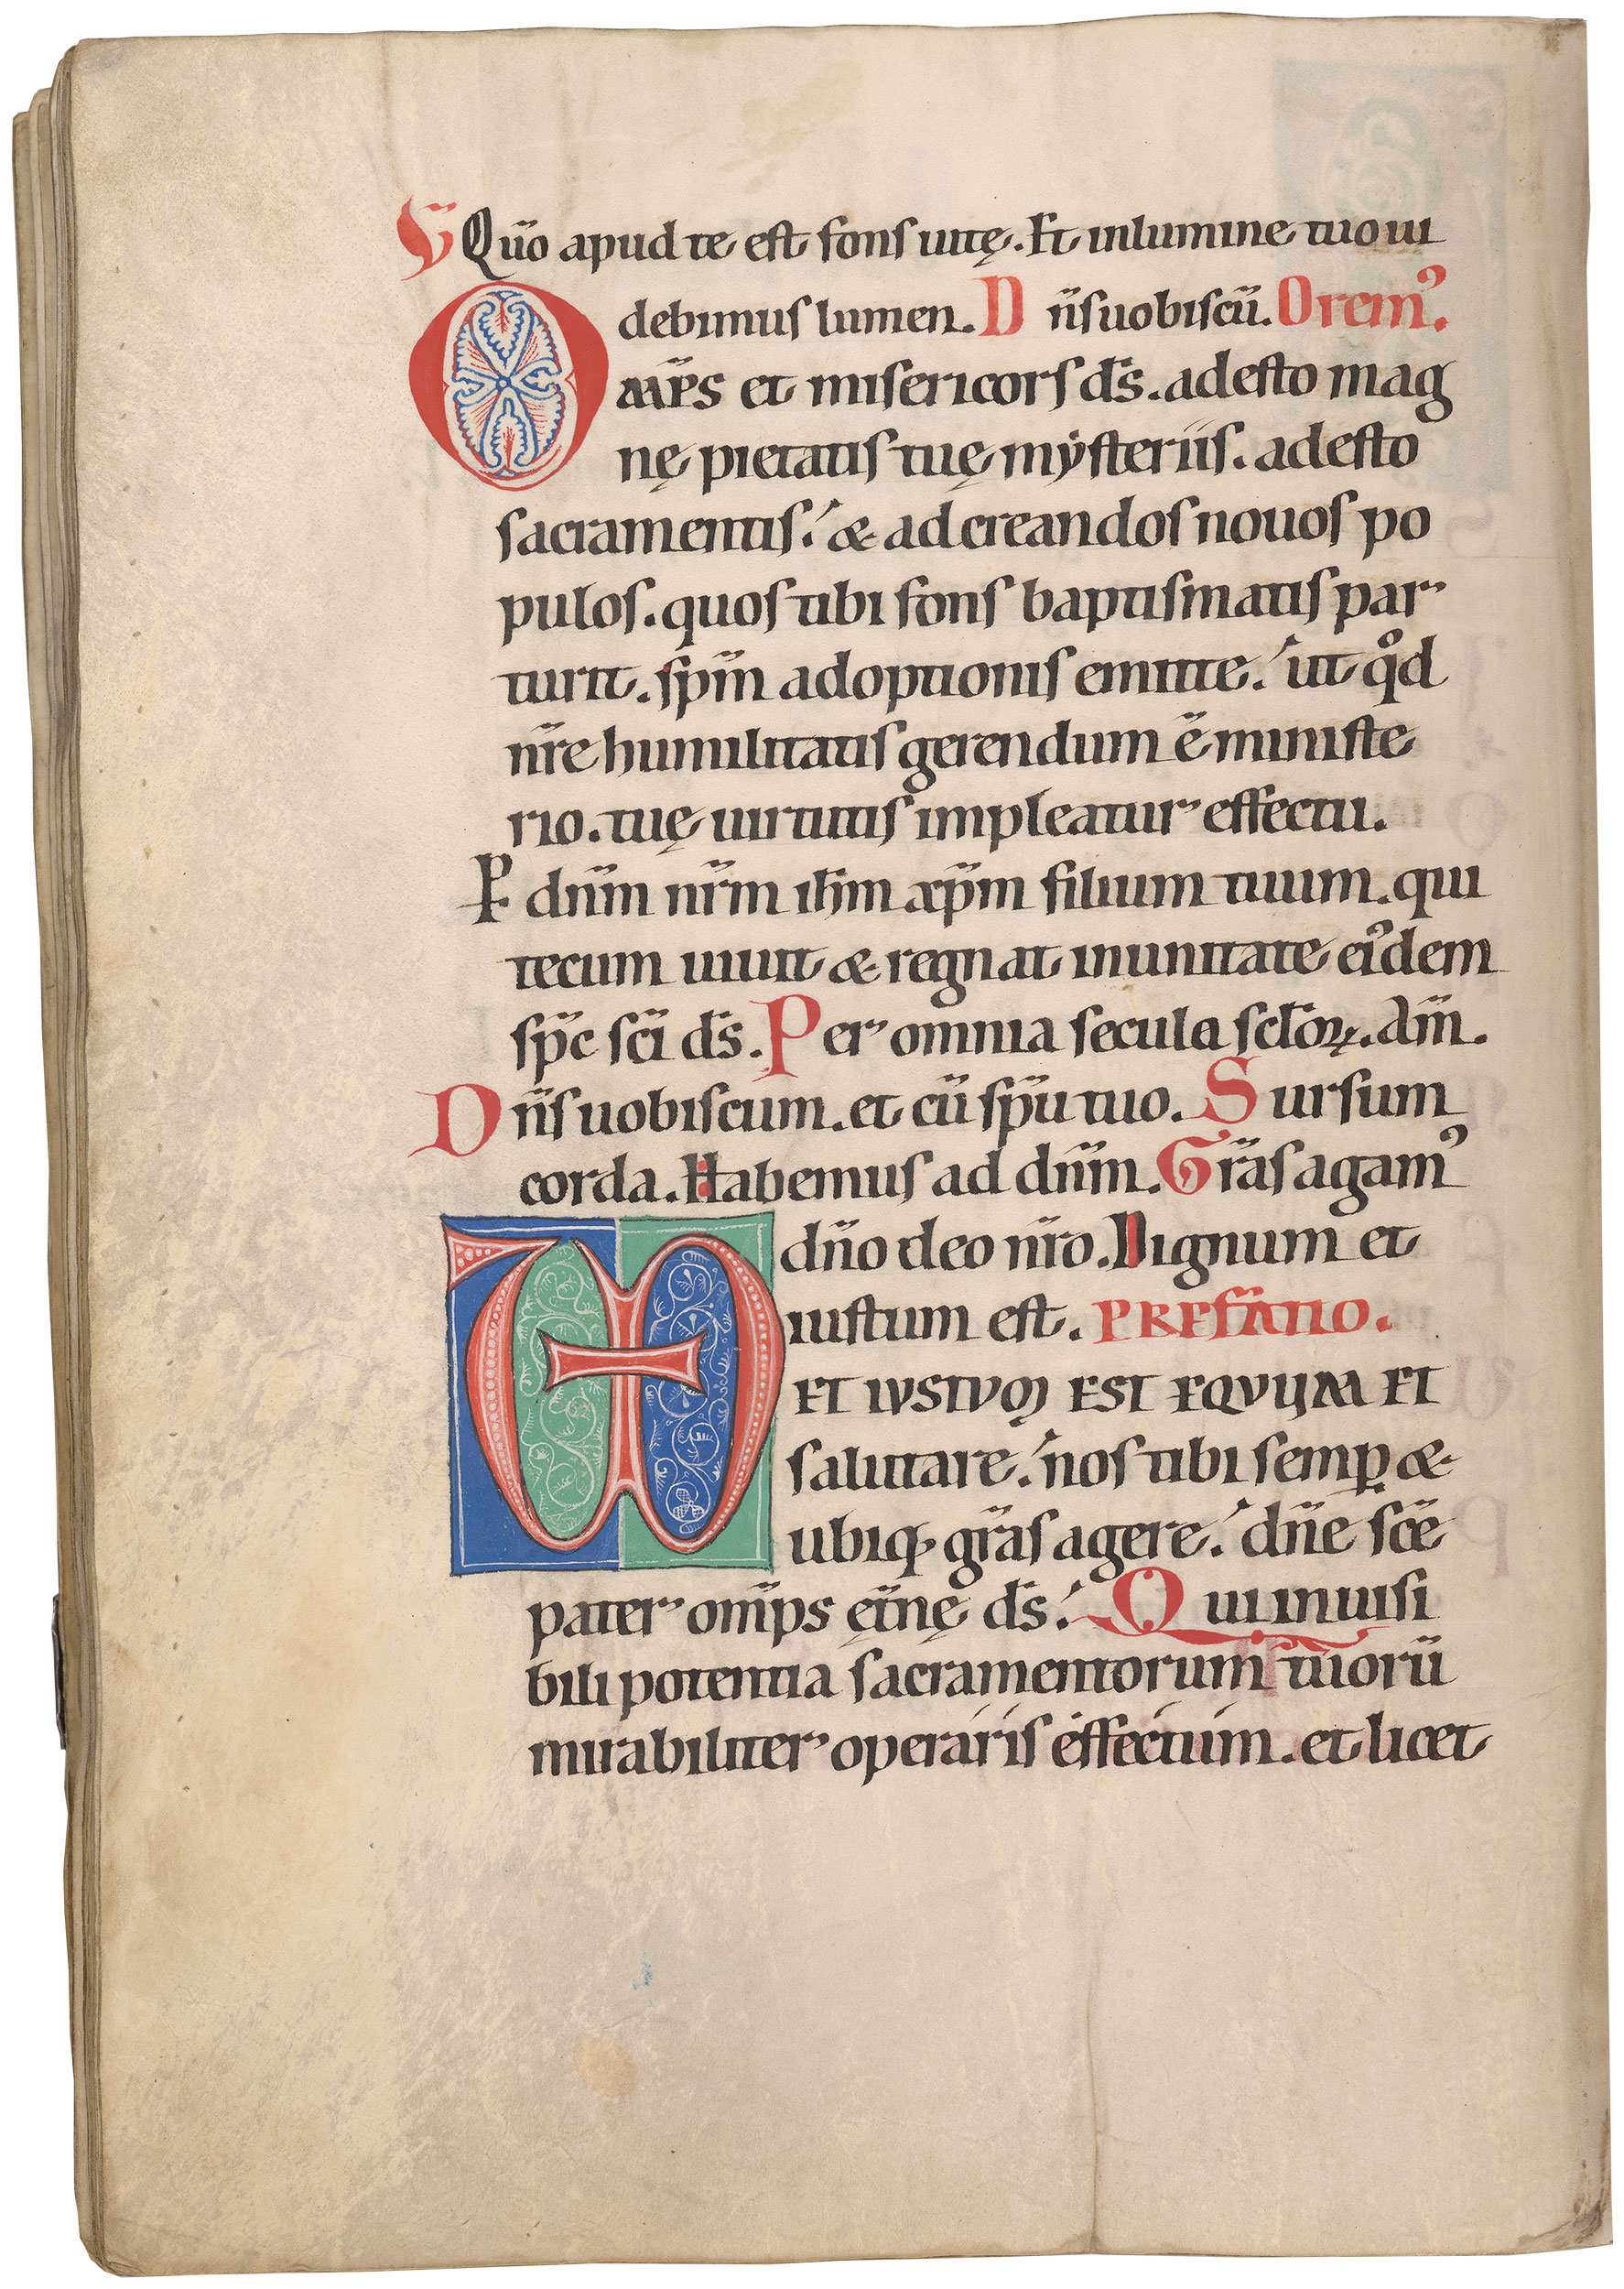 V Qūo apud te est fons uitę. Et inlumine tuo ui
debimus lumen. Dn̄s uobiscū. Orem᾽.
OMP̄S et misericors d̄s. adesto mag
nę pietatis tuę mẏsteriis. adesto
sacramentis. & ad creandos nouos po
pulos. quos tibi fons baptismatis par
turit. sp̄m adoptionis emitte. ut qͦd
nr̄e humilitatis gerendum ē ministe
rio. tuę uirtutis impleatur effectu.
P dn̄m nr̄m ih̄m xp̄m filium tuum. qui
tecum uiuit & regnat inunitate ei᾽dem
sp̄c sc̄i d̄s. Per omnia secula sc̄loꝝ. am̄.
Dn̄s uobiscum. et cū sp̄u tuo. Sursum
corda. Habemus ad dn̄m. Gr̄as agam᾽
dn̄o deo nr̄o. Dignum et
iustum est. PREFATIO.
ET IVSTVM EST EQVUM ET
salutare. nos tibi semꝑ &
ubiq; gr̄as agere. dn̄e sc̄e
pater om̄ps ęt̄nę d̄s. Qui inuisi
bili potentia sacramentorum tuorū
mirabiliter operáris éffectum. et licet